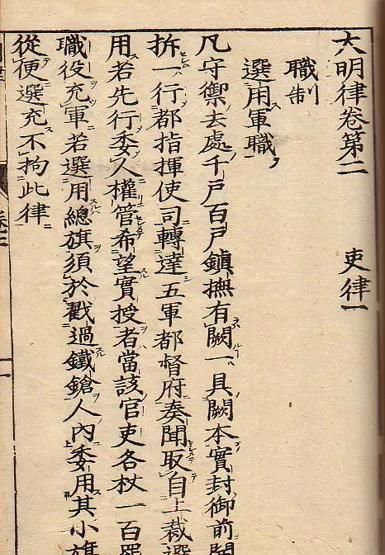 大明律卷第二 吏律一
職制
選用軍職
凡守禦去處千戶百戶鎮撫有闕一具闕本實封御前開
拆一行都指揮使司轉達五軍都督府奏聞取自上裁選
用若先行委人權管希望實授者當該官吏各杖一百罷
職役充軍若選用總旗須於戳過鐵鎗人內委用其小旗
從便選充不拘此律